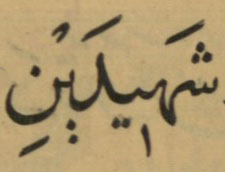 شَهِيدَيْنِ
١